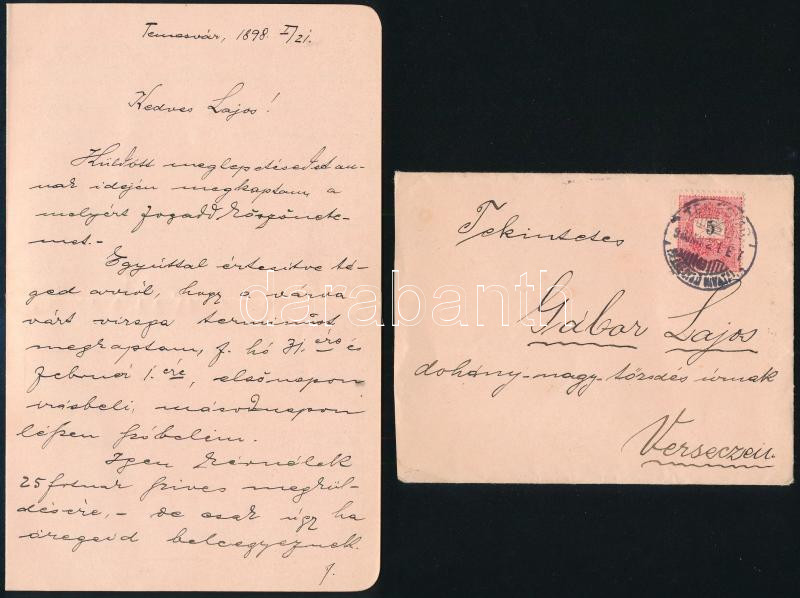 Temesvár, 1898. I/21.
Kedves Lajos!
Küldött meglepetésedet an-
nak idején megkaptam, a
melyért fogadd köszönete-
met.-
Egyúttal értesitve té-
ged arról, hogy a várva
várt vizsga terminust
megkaptam, f. hó 31.ére és
Február 1.ére, elsőnapon
irásbeli, másodnapon
lészen szóbelim.
Igen kérnélek
25 frtnak szives megkül-
désére,- de csak úgy ha
öregeid beleegyeznek.
Tekintetes
Gábor Lajos
dohány-nagy-tőzsdés úrnak
Verseczen.
5
darabanth